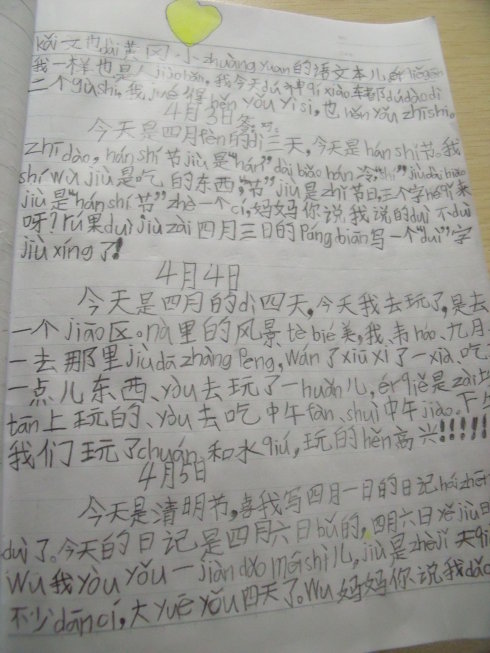 kǎi 文 dài 黄冈小 zhuàng yuan 的语文本儿,
我一样也 jiāo hǎn,我今天 dú
三个 gù shi,我 jué 得 hěn yǒu yì si,也 hěn yǒu zhī shi。
4月3日
今天是四月 fèn 的 dì 三天,今天是 hán shí 节。我
zhī dào,hán shí 节 jiù 是“hán” dài biǎo hán 冷“shí” jiù dài biǎo
shí wù jiù 是吃的东西,“节” jiù 是 zhǐ 节日,三个字
jiù 是“hán shí 节” zhè 一个 cí,妈妈你说我说的 duì 不 duì
呀?rú 果 duì jiù zài 四月三日的 páng biān 写一个“duì”字
jiù xíng 了!
4月4日
今天是四月的 dì 四天,今天我去玩了,是去
一个 jiāo 区。nà 里的风景 tè bié 美,我、韦 háo、九月
一去那里 jiù dā zhàng peng,wán 了 xiū xi 了一 xià、吃
一点儿东西、yòu 去玩了一 huǎn 儿,ér qiě 是 zài 沙
tān 上玩的、yòu 去吃中午 fàn、shuì 中午 jiào。下午
我们玩了 chuán 和水 qiú,玩的 hěn 高兴!!!!!
4月5日
今天是清明节,我写四月一日的日记
duì 了。今天的日记是四月六日 bǔ 的,四月六日 yě jiù 是
wu 我 yòu yǒu 一 jiàn dǎo méi shì 儿,jiù 是 zhè jǐ 天
不少 dān cí,大 yuē yǒu 四天了。wu 妈妈你说我 dǎo